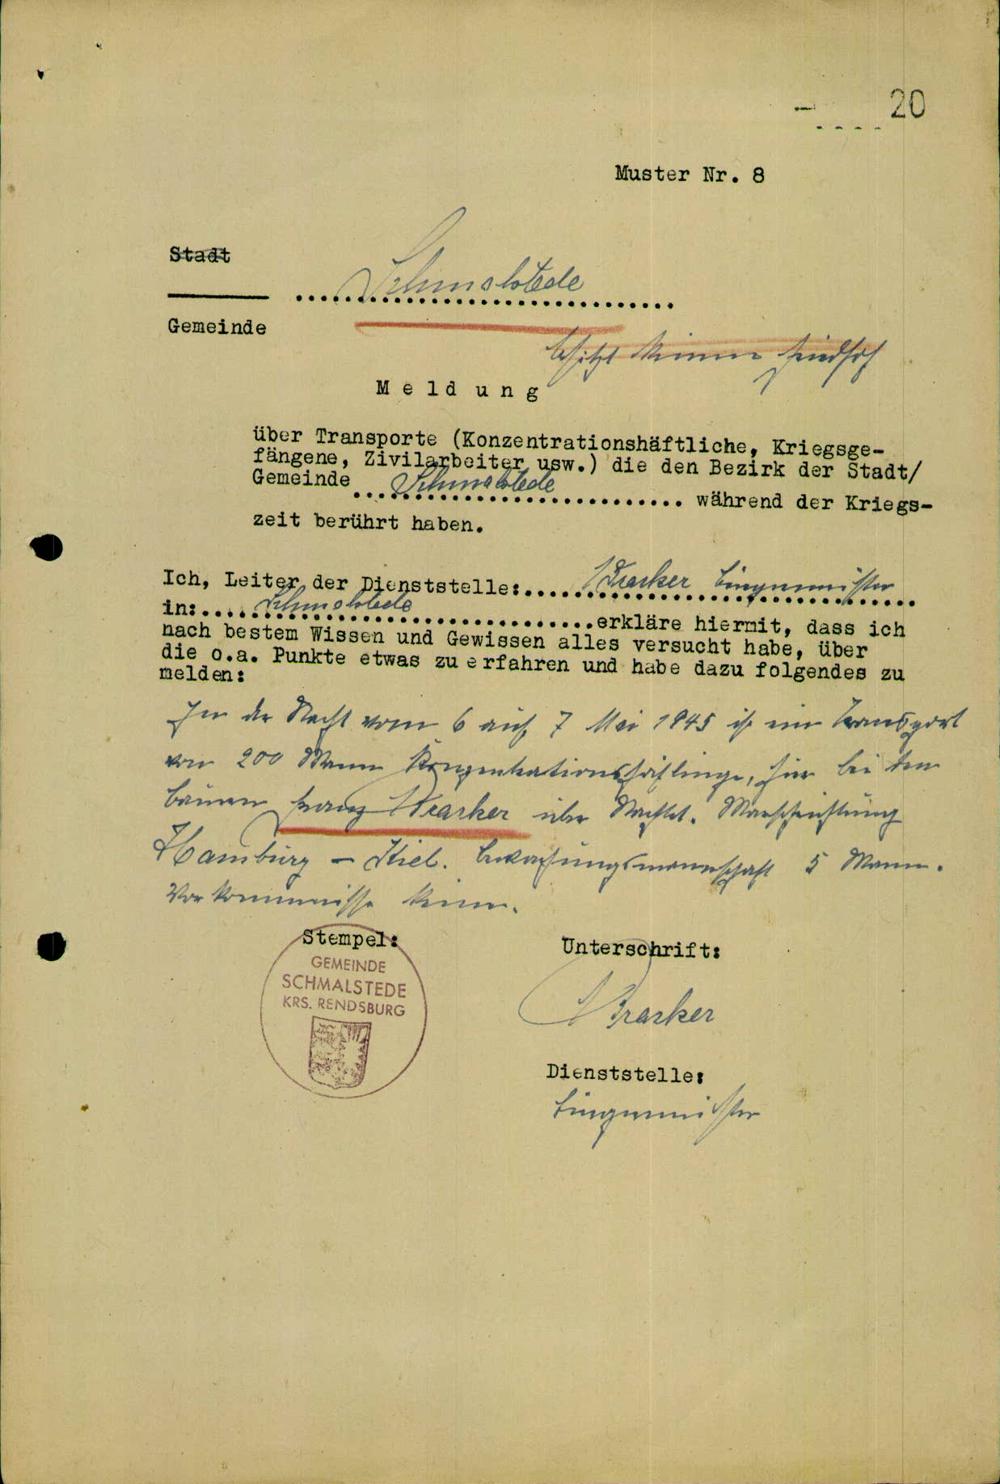 20
Muster Nr. 8
Stadt
Schmalstede
Gemeinde
besitzt keinen Friedhof
Meldung
über Transporte (Konzentrationshäftliche, Kriegsge-
fängene, Zivilarbeiter usw.) die den Bezirk der Stadt/
Gemeinde Schmalstede während der Kriegs-
zeit berührt haben.
Ich, Leiter der Dienststelle: Bürgermeister
in: Schmalstede erkläre hiermit, dass ich
nach bestem Wissen und Gewissen alles versucht habe, über
die o.a. Punkte etwas zu erfahren und habe dazu folgendes zu
melden:
In der Nacht vom 6 auf 7 Mai 1945 ist ein Transport
von 200 Mann Konzentrationshäftlinge, hier bei dem
Bauern Franz über Nachtet. Marschrichtung
Hamburg - Kiel. Bewachungsmannschaft 5 Mann.
Vorkommnisse keine.
Stempel:
GEMEINDE
SCHMALSTEDE
KRS. RENDSBURG
Unterschrift:
Dienststelle:
Bürgermeister